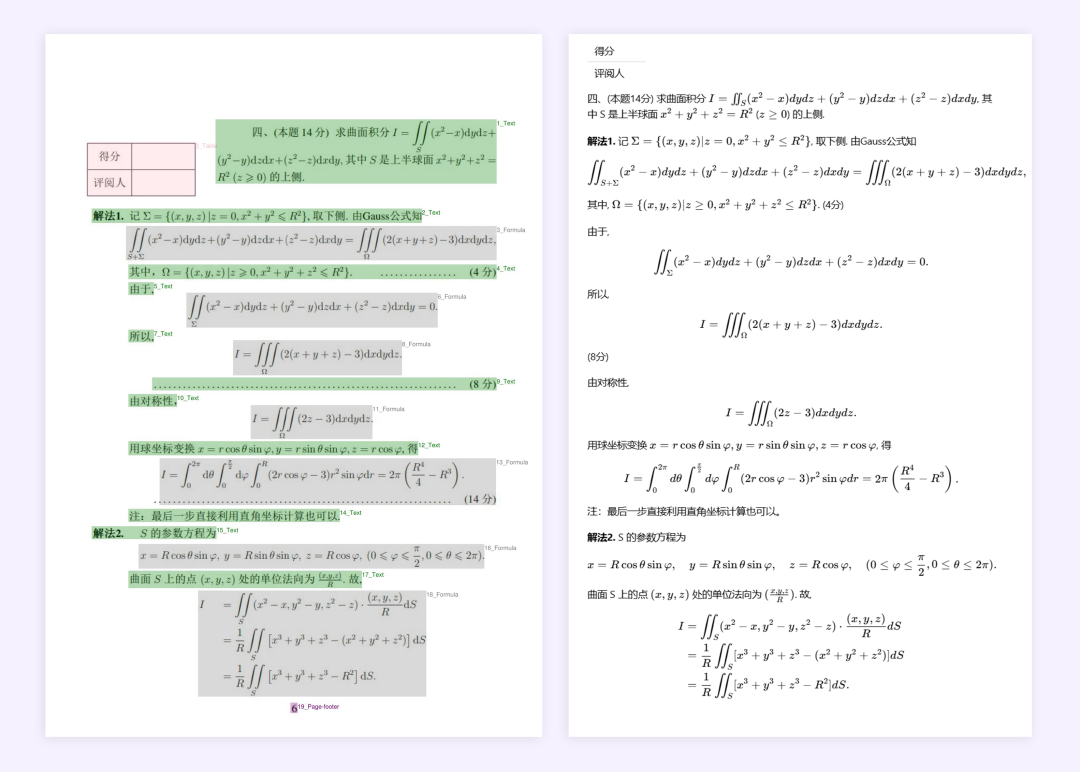 四、(本题 14 分) 求曲面积分 I = ∬_S (x²−x)dydz+
(y²−y)dzdx+(z²−z)dxdy, 其中 S 是上半球面 x²+y²+z² =
R² (z ⩾ 0) 的上侧.
1_Text
得分
评阅人
解法1. 记 Σ = {(x, y, z) |z = 0, x² + y² ⩽ R²}, 取下侧. 由Gauss公式知
2_Text
∬_{S+Σ} (x²−x)dydz+(y²−y)dzdx+(z²−z)dxdy = ∭_Ω (2(x+y+z)−3)dxdydz,
3_Formula
其中，Ω = {(x, y, z) |z ⩾ 0, x² + y² + z² ⩽ R²}. ................ (4 分)
4_Text
由于,
5_Text
∬_Σ (x² − x)dydz + (y² − y)dzdx + (z² − z)dxdy = 0.
6_Formula
所以,
7_Text
I = ∭_Ω (2(x + y + z) − 3)dxdydz.
8_Formula
............................................................ (8 分)
9_Text
由对称性,
10_Text
I = ∭_Ω (2z − 3)dxdydz.
11_Formula
用球坐标变换 x = r cos θ sin φ, y = r sin θ sin φ, z = r cos φ, 得
12_Text
I = ∫_0^{2π} dθ ∫_0^{π/2} dφ ∫_0^R (2r cos φ − 3)r² sin φdr = 2π (R⁴/4 − R³) .
13_Formula
............................................................ (14 分)
注：最后一步直接利用直角坐标计算也可以.
14_Text
解法2. S 的参数方程为
15_Text
x = R cos θ sin φ, y = R sin θ sin φ, z = R cos φ, (0 ⩽ φ ⩽ π/2, 0 ⩽ θ ⩽ 2π).
16_Formula
曲面 S 上的点 (x, y, z) 处的单位法向为 (x,y,z)/R. 故,
17_Text
I = ∬_S (x² − x, y² − y, z² − z) · (x, y, z)/R dS
18_Formula
= 1/R ∬_S [x³ + y³ + z³ − (x² + y² + z²)] dS
= 1/R ∬_S [x³ + y³ + z³ − R²] dS.
6
19_Page-footer
得分
评阅人
四、(本题14分) 求曲面积分 I = ∬_S (x² − x)dydz + (y² − y)dzdx + (z² − z)dxdy, 其
中 S 是上半球面 x² + y² + z² = R² (z ≥ 0) 的上侧.
解法1. 记 Σ = {(x, y, z)|z = 0, x² + y² ≤ R²}, 取下侧. 由Gauss公式知
∬_{S+Σ} (x² − x)dydz + (y² − y)dzdx + (z² − z)dxdy = ∭_Ω (2(x + y + z) − 3)dxdydz,
其中, Ω = {(x, y, z)|z ≥ 0, x² + y² + z² ≤ R²}. (4分)
由于,
∬_Σ (x² − x)dydz + (y² − y)dzdx + (z² − z)dxdy = 0.
所以,
I = ∭_Ω (2(x + y + z) − 3)dxdydz.
(8分)
由对称性,
I = ∭_Ω (2z − 3)dxdydz.
用球坐标变换 x = r cos θ sin φ, y = r sin θ sin φ, z = r cos φ, 得
I = ∫_0^{2π} dθ ∫_0^{π/2} dφ ∫_0^R (2r cos φ − 3)r² sin φdr = 2π (R⁴/4 − R³) .
注：最后一步直接利用直角坐标计算也可以。
解法2. S 的参数方程为
x = R cos θ sin φ, y = R sin θ sin φ, z = R cos φ, (0 ≤ φ ≤ π/2, 0 ≤ θ ≤ 2π).
曲面 S 上的点 (x, y, z) 处的单位法向为 (x,y,z/R). 故,
I = ∬_S (x² − x, y² − y, z² − z) · (x, y, z)/R dS
= 1/R ∬_S [x³ + y³ + z³ − (x² + y² + z²)]dS
= 1/R ∬_S [x³ + y³ + z³ − R²]dS.